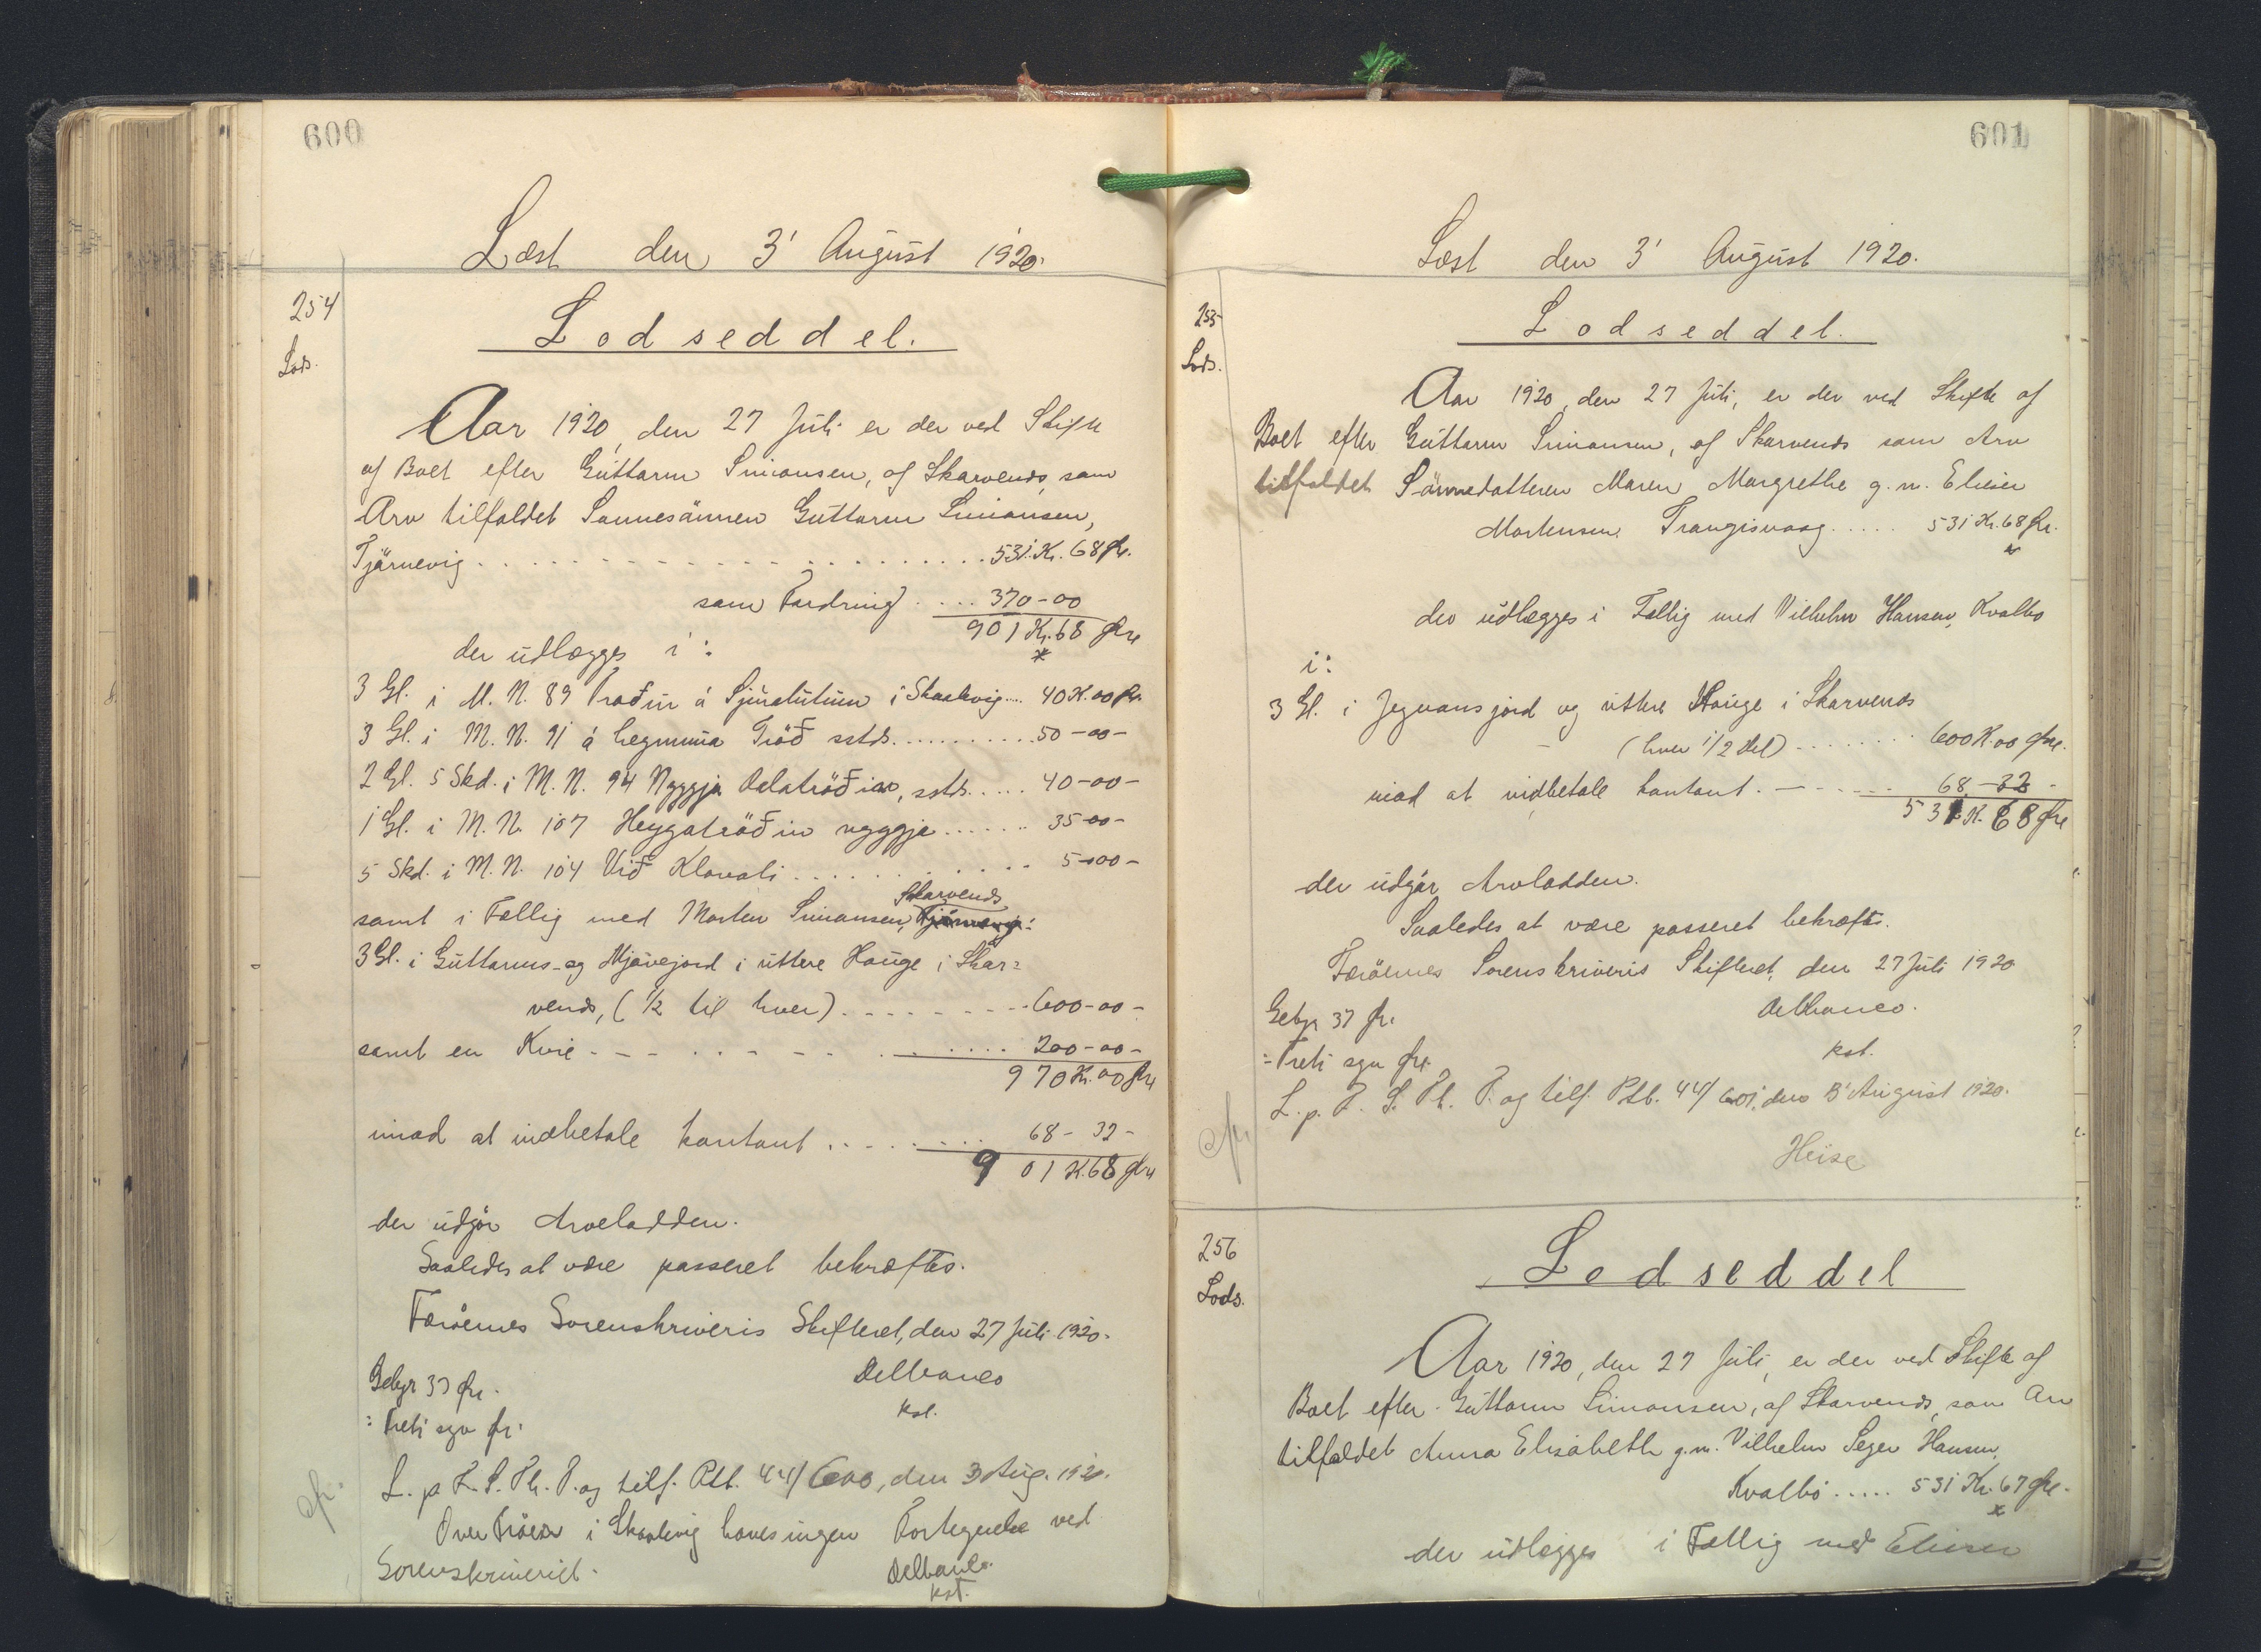 600
Læst den 3' August 1920.
254
Lods.
Lodseddel.
Aar 1920, den 27 Juli er der ved Skifte
af Boet efter Guttorm Simonsen, af Skarvends, som
Arv tilfaldet Sønnesønnen Guttorm Simonsen,
Tjörnevig . . . . . 531 Kr. 68 Øre.
som Fordring . . . . 370-00
901 Kr. 68 Øre
der udlægges i :
3 Gl. i M. N. 89 Traðir á Sjúralutum i Skaalevig .... 40 K. 00 Øre.
3 Gl. i M. N. 91 á Tröð sstds. . . . . 50-00-
2 Gl. 5 Skd. i M. N. 94 Nyggja Dalatröðin, sstds. .... 40-00-
1 Gl. i M. N. 107 Heygatröðin nyggja . . . . . 35-00-
5 Skd. i M. N. 104 Við . . . . . 5-00-
Skarvends
samt i Fællig med Morten Simonsen, Tjörnevig:
3 Gl. i Guttorms- og Mjávejord i uttere Hauge i Skar=
vends, (½ til hver) . . . . . 600-00-
samt en Kvie . . . . . 200-00-
970 Kr. 00 Øre
imod at indbetale kontant . . . . . 68-32-
901 K. 68 Øre
der udgör Arvelodden.
Saaledes at være passeret bekræftes.
Færöernes Sorenskriveris Skifteret, den 27 Juli 1920.
Gebyr 37 Øre. Delbanco
: Treti syv Ør. kst.
L. p. F. S. Th. P. og tilf. Ptb. 44/600, den 3 Aug. 1920.
Over Tröer i Skaalevig haves ingen Fortegnelse ved
Sorenskriveriet. Delbanco.
kst.
601
Læst den 3' August 1920.
255
Lods.
Lodseddel.
Aar 1920, den 27 Juli, er der ved Skifte af
Boet efter Guttorm Simonsen, af Skarvends som Arv
tilfaldet Sönnedatteren Maren Margrethe g. m. Elieser
Mortensen, Trangisvaag . . . . . 531 Kr. 68 Øre.
der udlægges i Fællig med Vilhelm Hansen, Kvalbö
i:
3 Gl. i Jegvansjord og uttere Hauge i Skarvends
(hver 1/2 Del) . . . . . 600 K. 00 Øre.
imod at indbetale kontant . . . . . 68-32-
531 K. 68 Øre
der udgör Arvelodden.
Saaledes at være passeret bekræftes.
Færöernes Sorenskriveris Skifteret, den 27 Juli 1920
Gebyr 37 Ør. Delbanco.
: Treti syv Øre. kst.
L. p. F. S. Th. P. og tilf. Ptb. 44/601, den 3' August 1920.
Heise
256
Lods.
Lodseddel
Aar 1920, den 27 Juli, er der ved Skifte af
Boet efter Guttorm Simonsen, af Skarvends, som Arv
tilfaldet Anna Elisabeth g. m. Vilhelm Seger Hansen,
Kvalbö ..... 531 Kr. 67 Øre.
der udlægges i Fællig med Elieser